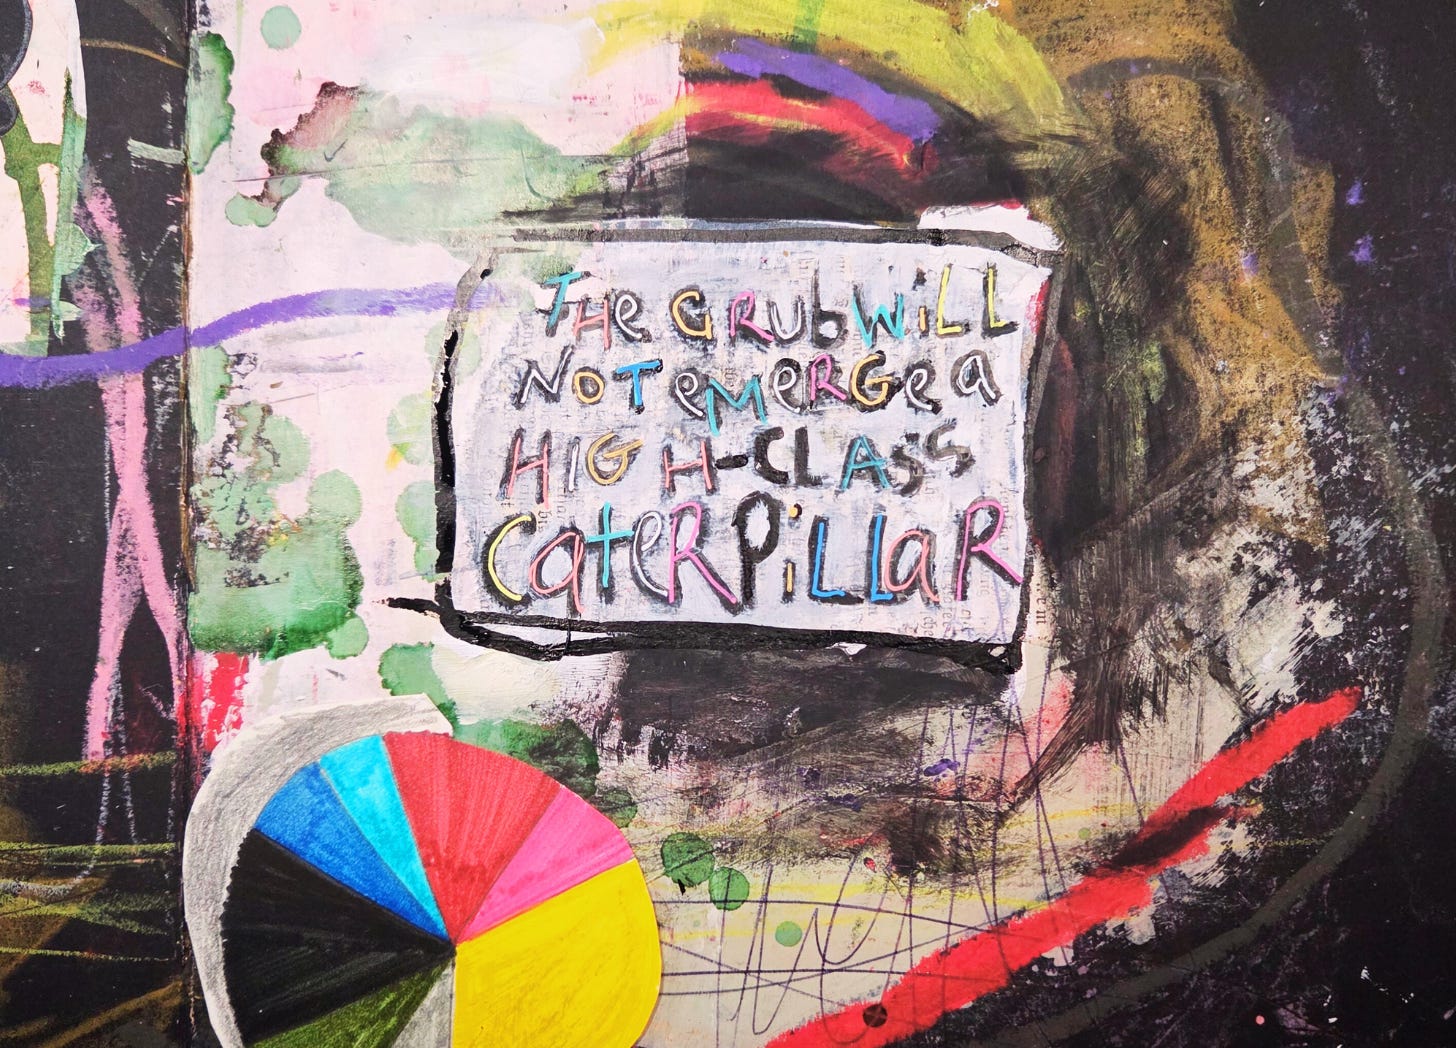 THe GRUb WiLL
NOT eMeRGe a
HIGH-CLASS
CateRPiLLaR